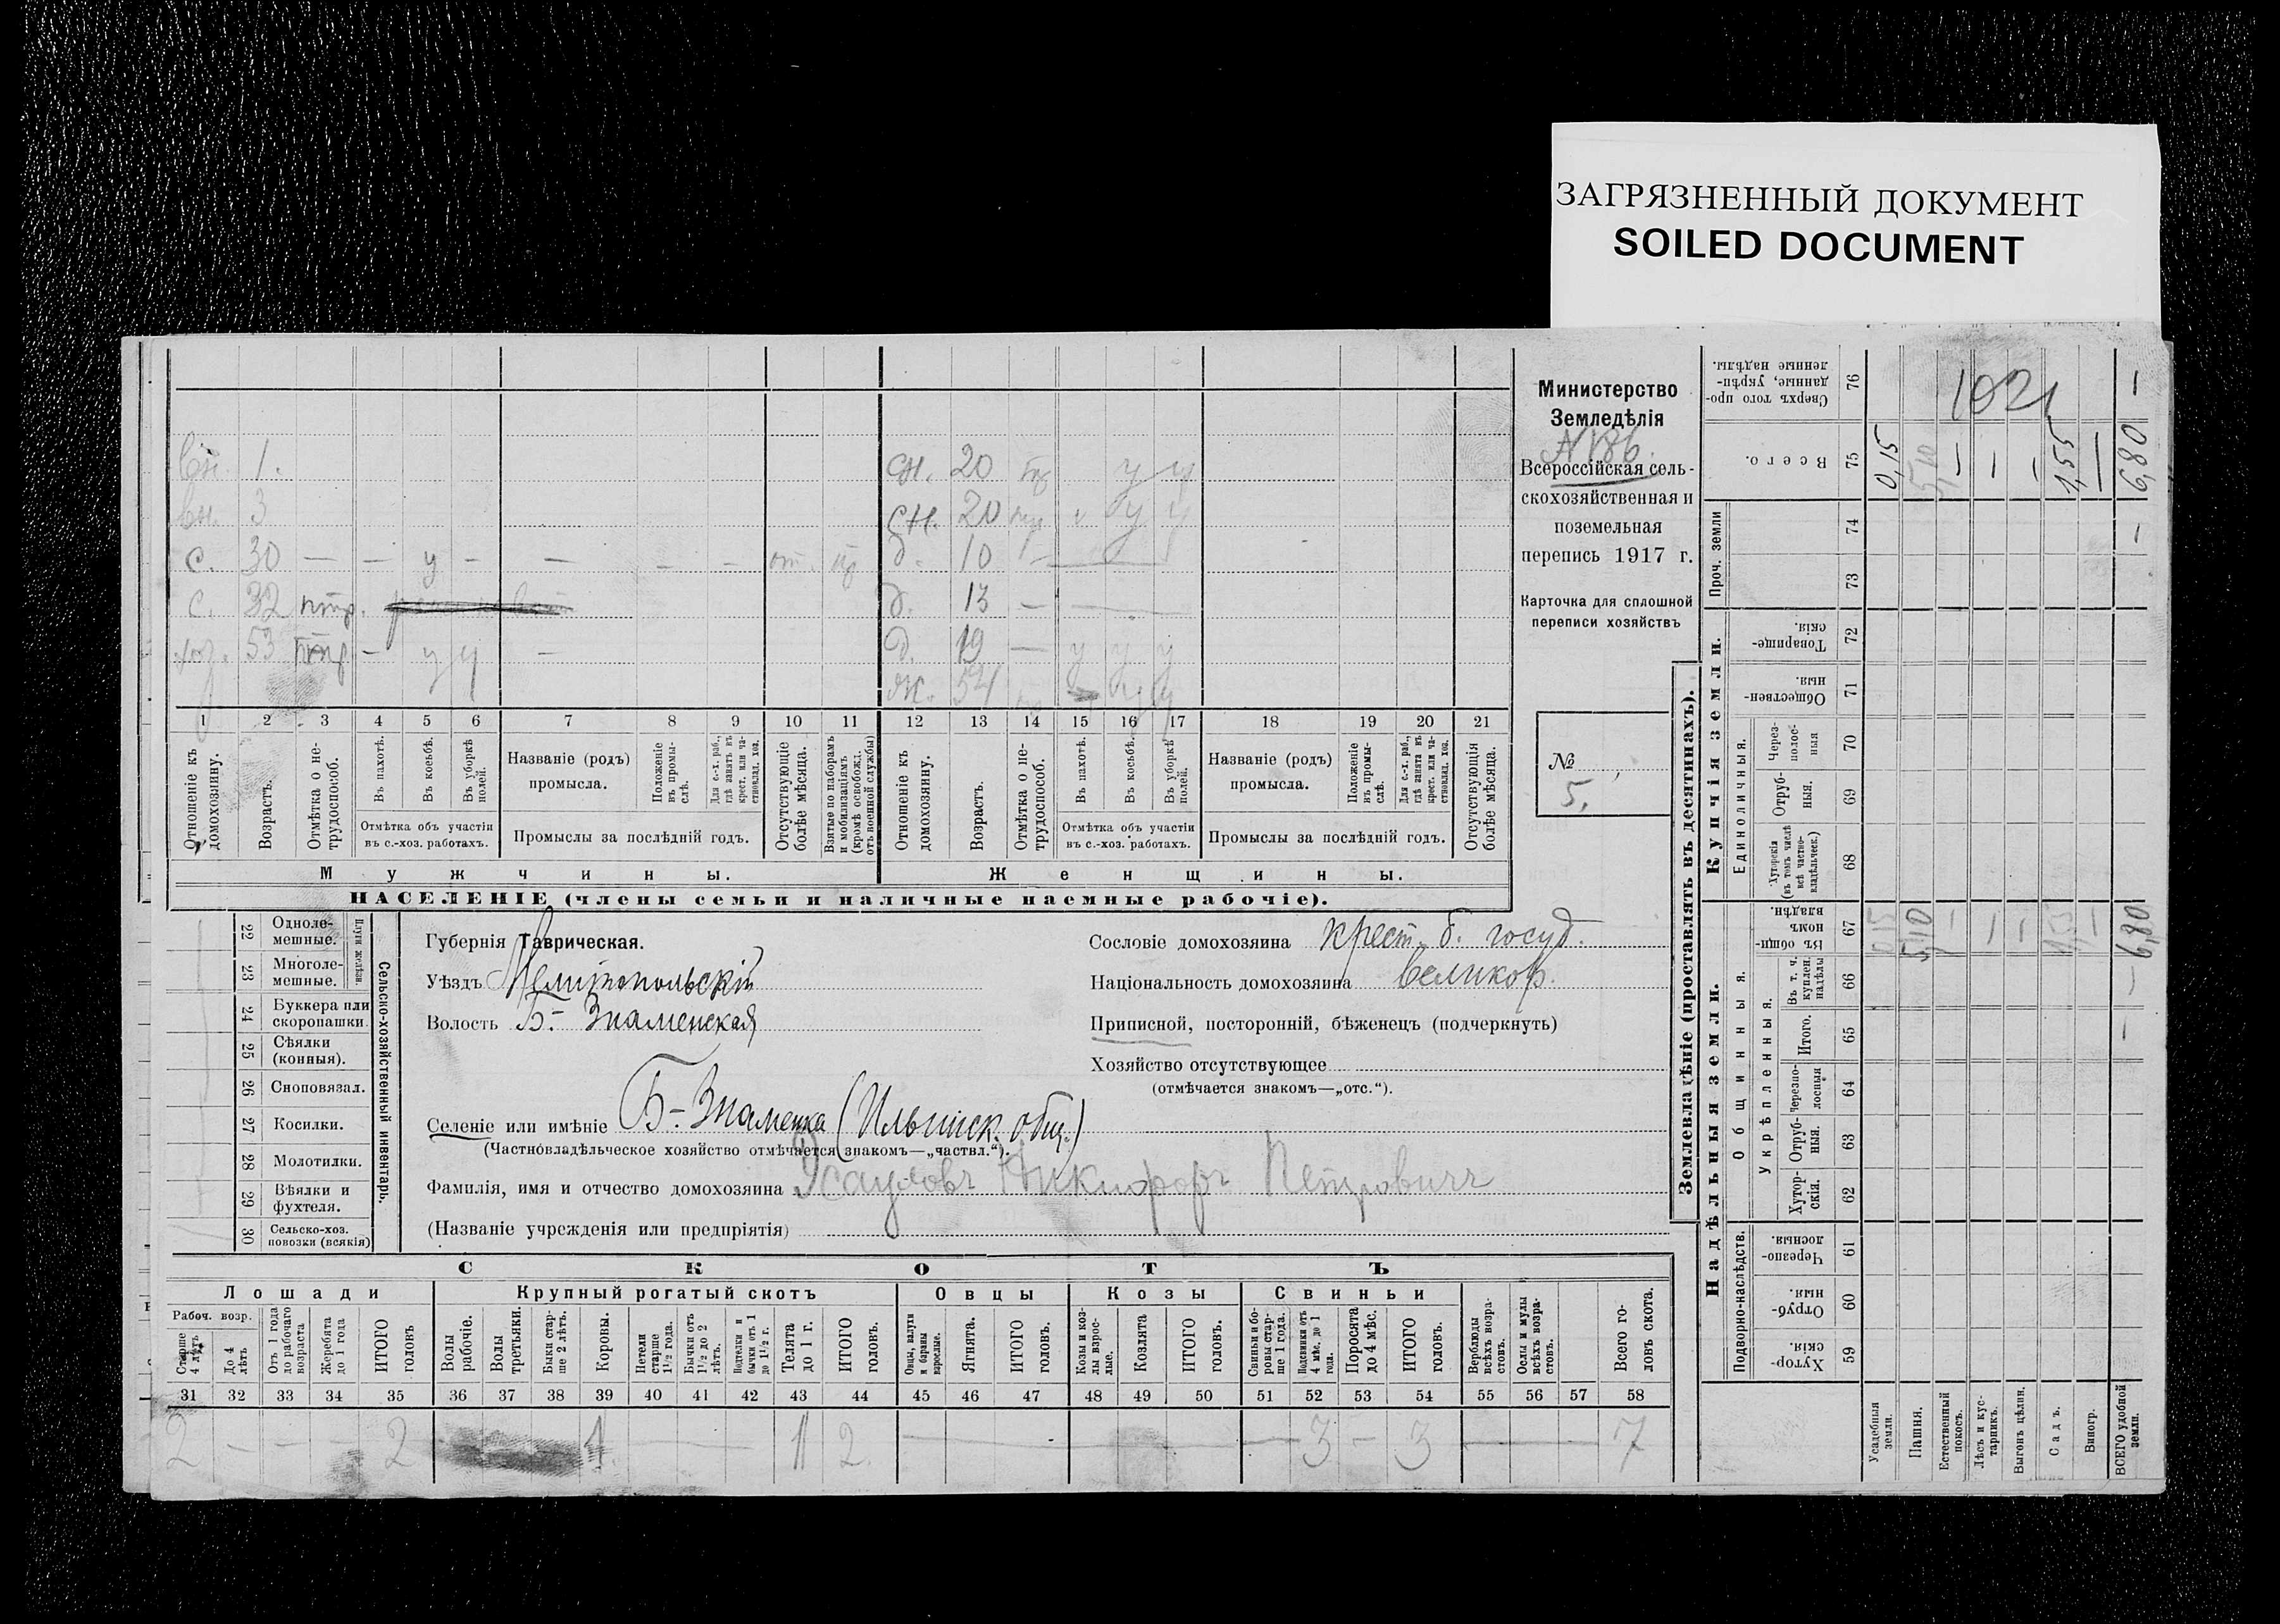 ЗАГРЯЗНЕННЫЙ ДОКУМЕНТ
SOILED DOCUMENT
Министерство
Земледѣлія
N 186.
Всероссійская сель-
скохозяйственная и
поземельная
перепись 1917 г.
Карточка для сплошной
переписи хозяйствъ
№
5.
вн. 1.
вн. 3
с. 30 — — у — — — —
с. 32
53 — у у —
сн. 20 у у
сн. 20 у у
д. 10 —
д. 13 —
д. 19 — у у у
ж. 54
1 2 3 4 5 6 7 8 9 10 11 12 13 14 15 16 17 18 19 20 21
Отношеніе къ домохозяину.
Возрастъ.
Отмѣтка о не-трудоспособ.
Въ пахотѣ.
Въ косьбѣ.
Въ уборкѣ полей.
Отмѣтка объ участіи
въ с.-хоз. работахъ.
Названіе (родъ)
промысла.
Положеніе въ промы-слѣ.
Для с.-х. раб., гдѣ занятъ въ крест. или ча-стновлад. хоз.
Промыслы за послѣдній годъ.
Отсутствующіе болѣе мѣсяца.
Взятые по наборамъ и мобилизаціямъ (кромѣ освобожд. отъ военной службы)
Отношеніе къ домохозяину.
Возрастъ.
Отмѣтка о не-трудоспособ.
Въ пахотѣ.
Въ косьбѣ.
Въ уборкѣ полей.
Отмѣтка объ участіи
въ с.-хоз. работахъ.
Названіе (родъ)
промысла.
Положеніе въ промы-слѣ.
Для с.-х. раб., гдѣ занята въ крест. или ча-стновлад. хоз.
Промыслы за послѣдній годъ.
Отсутствующія болѣе мѣсяца.
Мужчины.
Женщины.
НАСЕЛЕНІЕ (члены семьи и наличные наемные рабочіе).
22 Одноле-мешные.
23 Многоле-мешные.
24 Буккера или скоропашки.
25 Сѣялки (конныя).
26 Сноповязал.
27 Косилки.
28 Молотилки.
29 Вѣялки и фухтеля.
30 Сельско-хоз. повозки (всякія)
Сельско-хозяйственный инвентарь.
Губернія Таврическая.
Уѣздъ Мелитопольскій
Волость Б.-Знаменская
Селеніе или имѣніе Б.-Знаменка (Ильинск. общ.)
(Частновладѣльческое хозяйство отмѣчается знакомъ—„частвл.“).
Фамилія, имя и отчество домохозяина Никифоръ Петровичъ
(Названіе учрежденія или предпріятія)
Сословіе домохозяина крест. б. госуд.
Національность домохозяина великор.
Приписной, посторонній, бѣженецъ (подчеркнуть)
Хозяйство отсутствующее
(отмѣчается знакомъ—„отс.“).
СКОТЪ
Лошади
Крупный рогатый скотъ
Овцы
Козы
Свиньи
Рабоч. возр.
Старше 4 лѣтъ
До 4 лѣтъ
Отъ 1 года до рабочаго возраста
Жеребята до 1 года
ИТОГО головъ
Волы рабочіе.
Волы третьяки.
Быки стар-ше 2 лѣтъ.
Коровы.
Нетели старше 1½ года.
Бычки отъ 1½ до 2 лѣтъ.
Подтелки и бычки отъ 1 до 1½ г.
Телята до 1 г.
ИТОГО головъ.
Овцы, валухи и бараны взрослые.
Ягнята.
ИТОГО головъ.
Козы и коз-лы взрос-лые.
Козлята
ИТОГО головъ.
Свиньи и бо-ровы стар-ше 1 года.
Подсвинки отъ 4 мѣс. до 1 года.
Поросята до 4 мѣс.
ИТОГО головъ.
Верблюды всѣхъ возра-стовъ.
Ослы и мулы всѣхъ возра-стовъ.
Всего го-ловъ скота.
31 32 33 34 35 36 37 38 39 40 41 42 43 44 45 46 47 48 49 50 51 52 53 54 55 56 57 58
2 — — — 2 1 — 1 2 — — 3 — 3 — 7
Землевладѣніе (проставлять въ десятинахъ).
Надѣльныя земли.
Купчія земли.
Проч. земли
Подворно-наслѣдств.
Общинныя.
Укрѣпленныя.
Единоличныя.
Хутор-скія. 59
Отруб-ныя. 60
Черезпо-лосныя. 61
Хутор-скія. 62
Отруб-ныя. 63
Черезпо-лосныя 64
Итого. 65
Въ т. ч. куплен. надѣлы 66
Въ общин-номъ владѣн. 67
Хуторскія (въ томъ числѣ всѣ частно-владѣльческ.) 68
Отруб-ныя. 69
Через-полос-ныя 70
Обществен-ныя. 71
Товарище-скія. 72
73
74
Всего. 75
Сверхъ того про-данные, укрѣп-ленные надѣлы. 76
Усадебныя земли.
Пашня.
Естественный покосъ.
Лѣсъ и кус-тарникъ.
Выгонъ цѣлин.
Садъ.
Виногр.
ВСЕГО удобной земли.
0,15 5,10 — — — 1,55 — 6,80
0,15 5,10 — — — 1,55 — 6,80